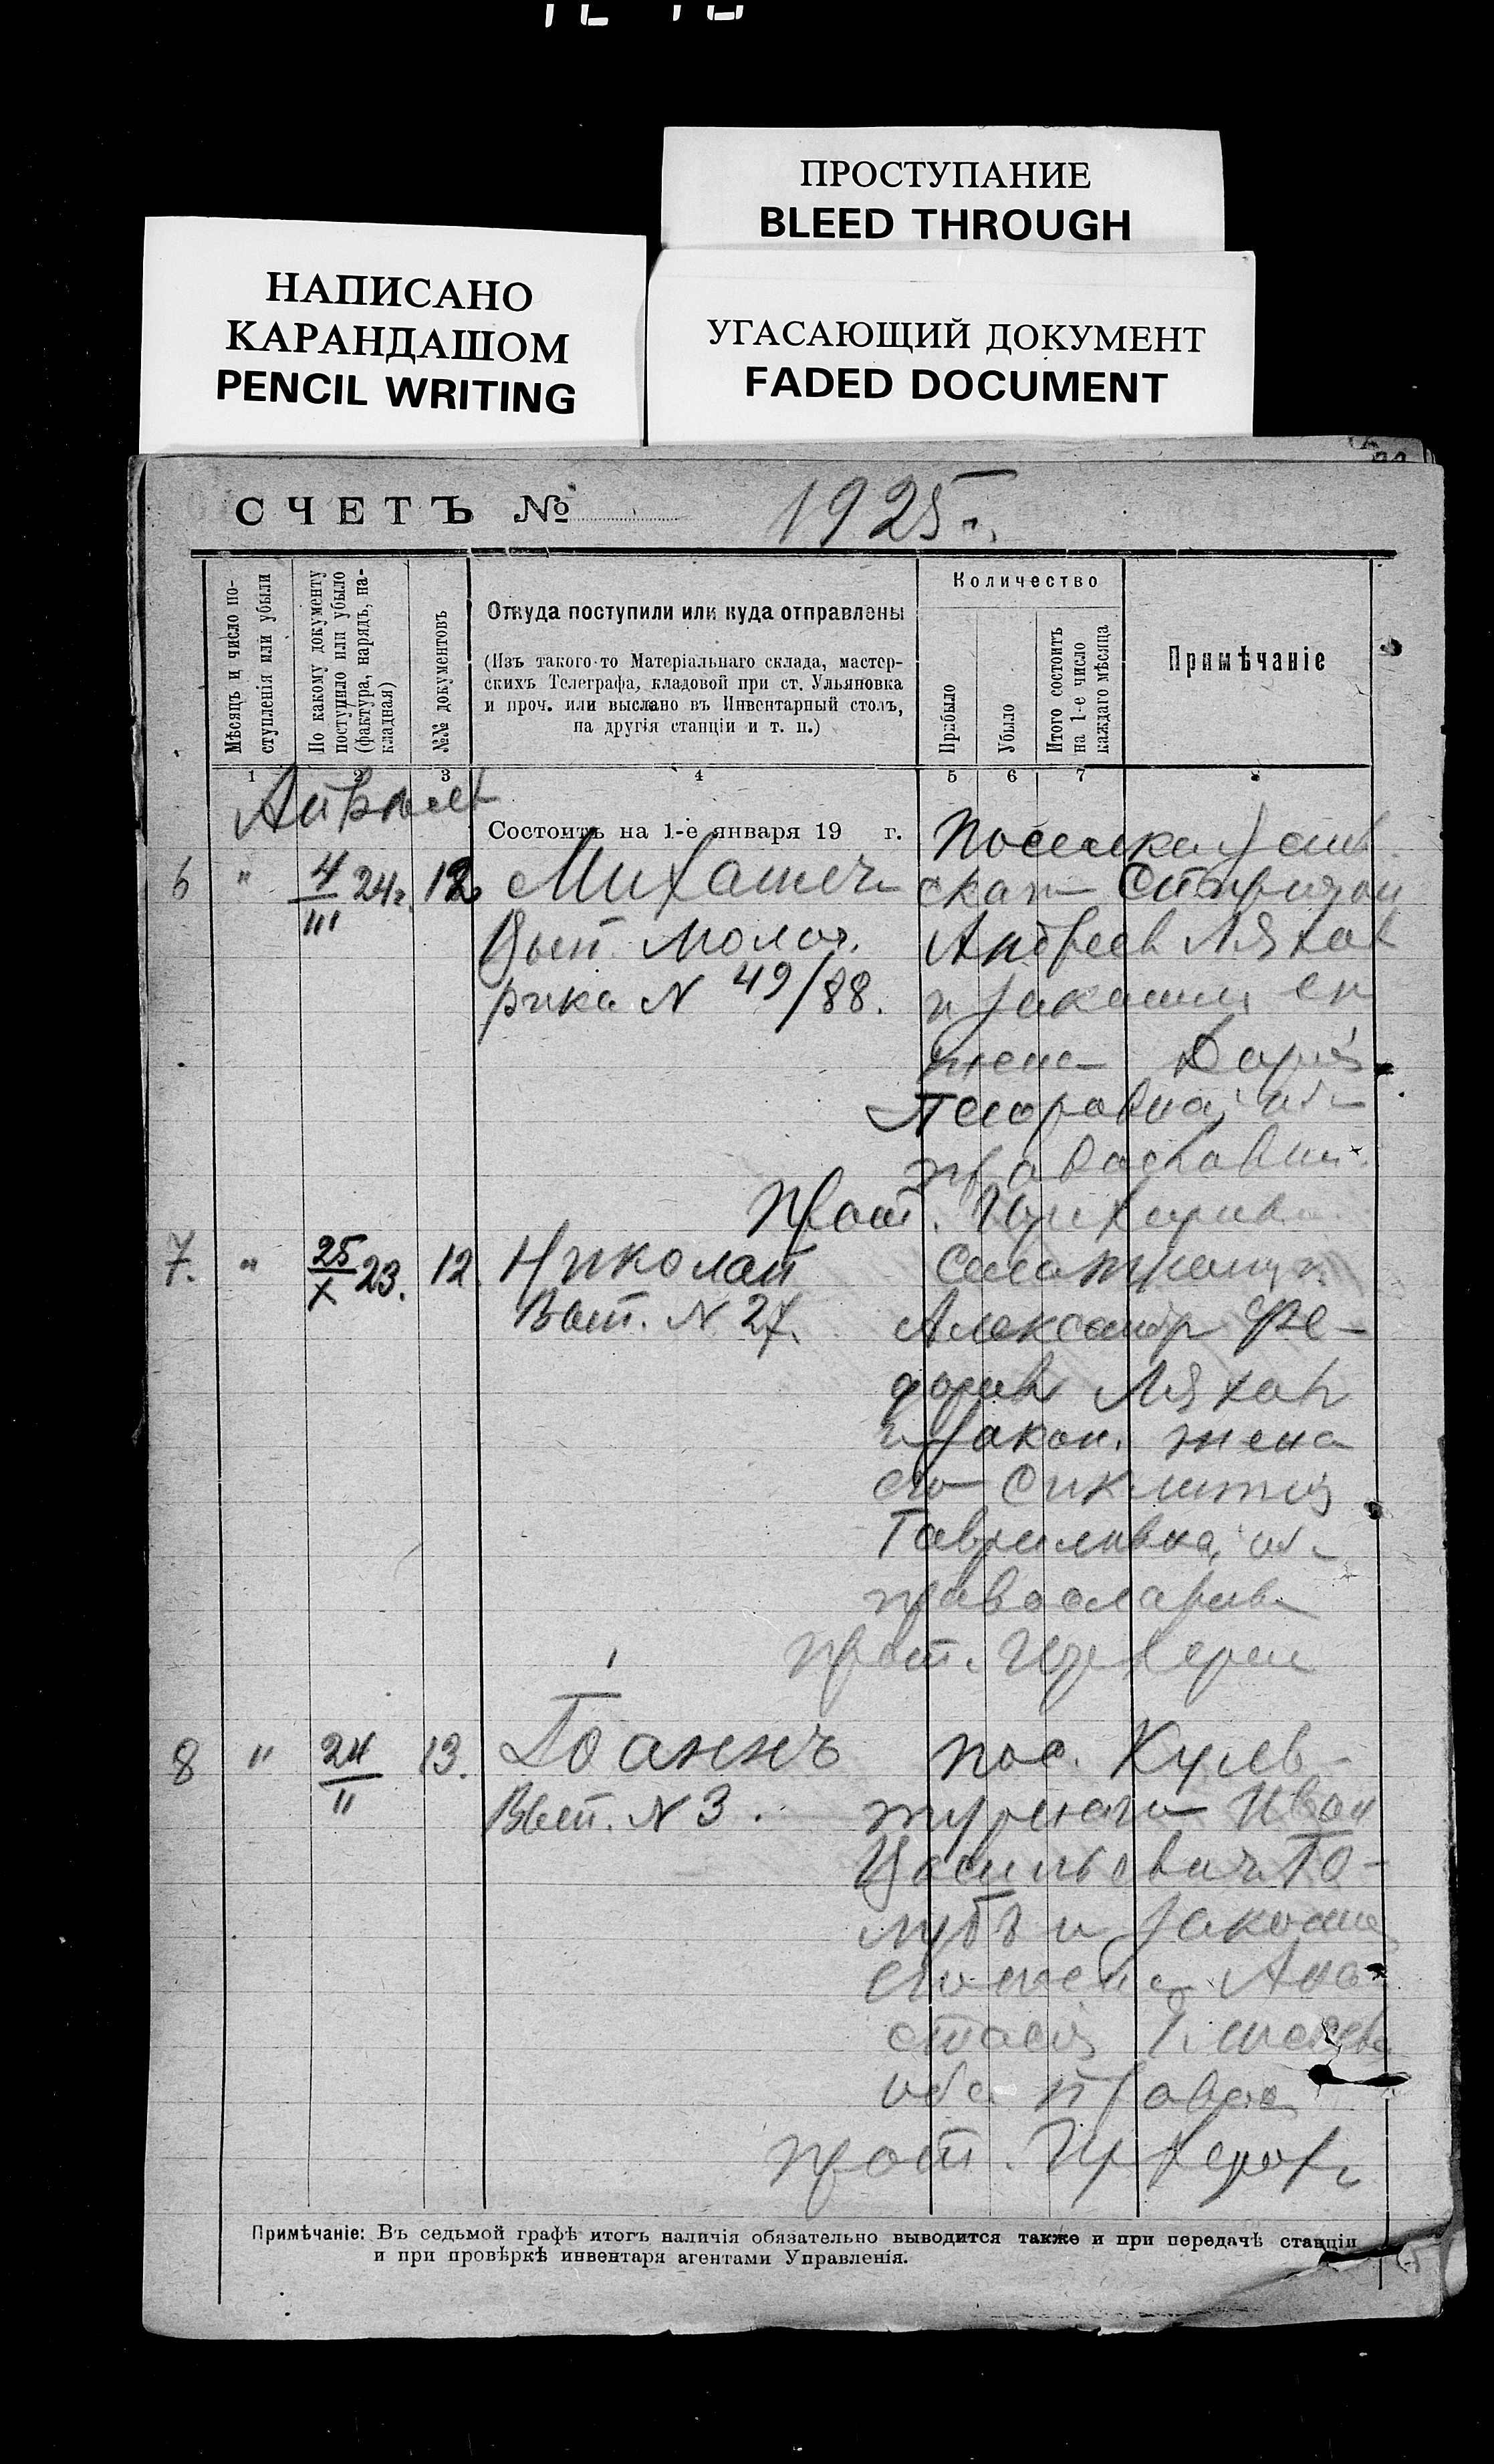 ПРОСТУПАНИЕ
BLEED THROUGH
НАПИСАНО
КАРАНДАШОМ
PENCIL WRITING
УГАСАЮЩИЙ ДОКУМЕНТ
FADED DOCUMENT
СЧЕТЪ № 1925 г.
Мѣсяцъ и число по-
ступленія или убыли
По какому документу
поступило или убыло
(фактура, нарядъ, на-
кладная)
№№ документовъ
Откуда поступили или куда отправлены
(Изъ такого-то Матеріальнаго склада, мастер-
скихъ Телеграфа, кладовой при ст. Ульяновка
и проч. или выслано въ Инвентарный столъ,
на другія станціи и т. п.)
Количество
Прибыло
Убыло
Итого состоитъ
на 1-е число
каждаго мѣсяца
Примѣчаніе
1 2 3 4 5 6 7 8
Состоитъ на 1-е января 19 г.
6 " 4/III 24 г. 12 Михаилъ
Вып. Молоч.
рика N 49/88.
Поселка
Андреев Ляхов
и
жена Дарія
оба
православн.
Прот.
7. " 25/X 23. 12. Николай
Вып. N 27.
Александр Фе-
доров Ляхов
и закон. жена
его Синклитія
Гавриловна, оба
православн
Прот.
8 " 24/II 13. Іоаннъ
Вып. N 3.
пос. Куль-
турнаго Иван
Васильевич Го-
лубъ и законная
его жена Ана-
стасія
оба правос
Прот.
Примѣчаніе: Въ седьмой графѣ итогъ наличія обязательно выводится также и при передачѣ станціи
и при провѣркѣ инвентаря агентами Управленія.